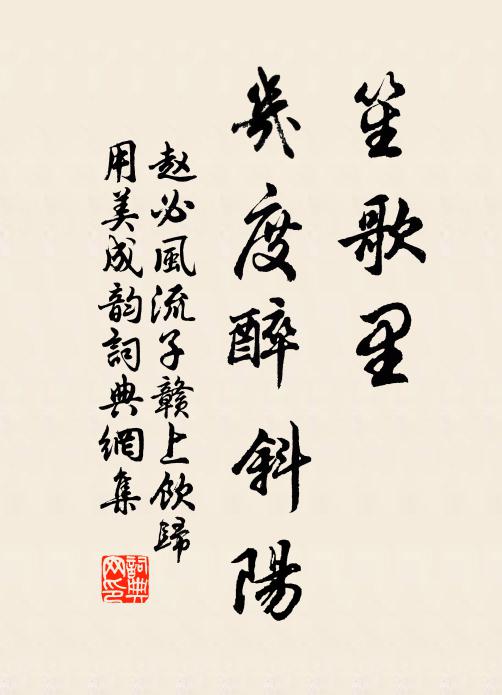 笙歌里
幾度醉斜陽
赵必風流子贛上飲歸
用美成韵詞典網集
詞典
网印